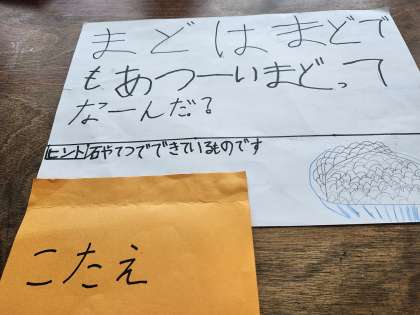 まどはまどで
もあつーいまどって
なーんだ?
ヒント石やてつでできているものです
こたえ